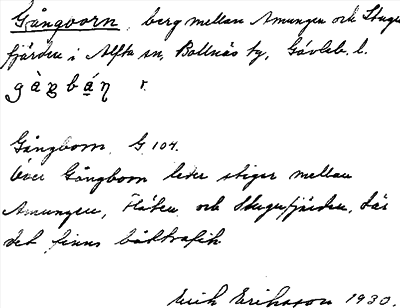 Gångborn, berg mellan Amungen och Stugu-
fjärden i Alfta sn, Bollnäs tg, Gävleb. l.
gàŋbáṇ r.
Gångborn. G 104.
Över Gångborn leder stigen mellan
Amungen, Flaten och Stugufjärden, där
det finns båttrafik
Erik Eriksson 1930.